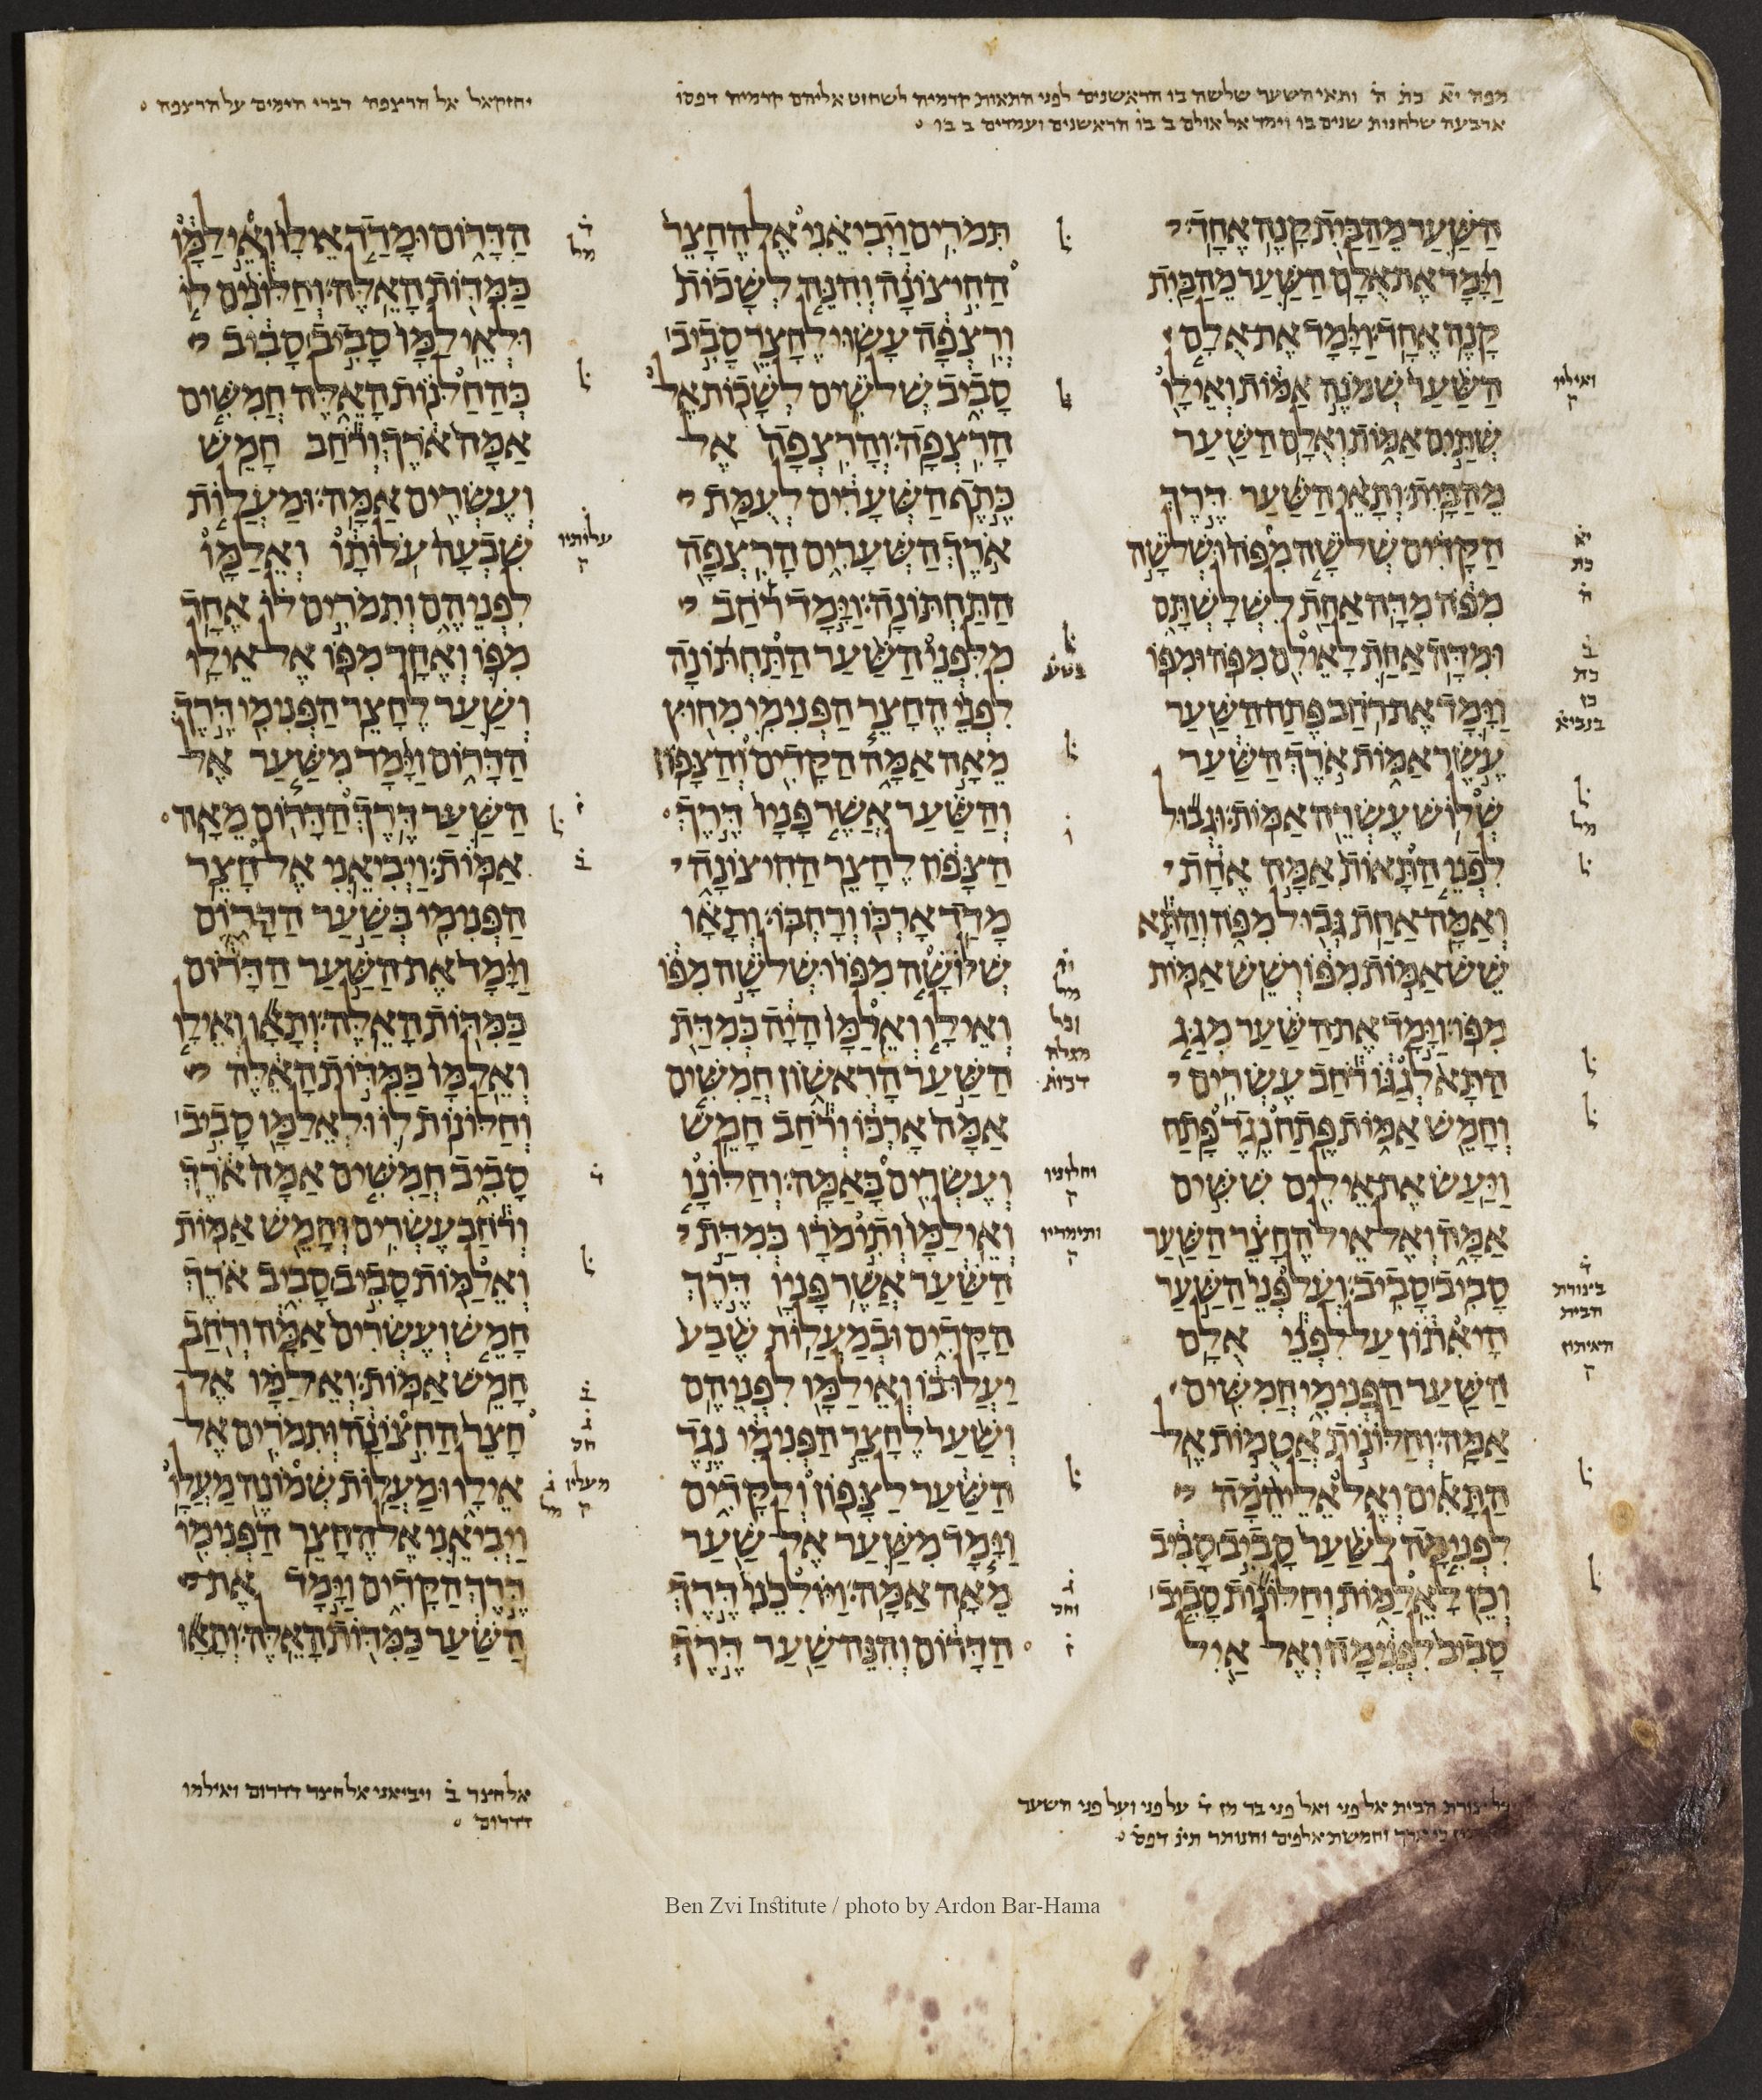 מפה יא כת ה ותאי השער שלשה בו הראשנים לפני התאות קדמיה לשחוט אליהם קדמיה דפסו
ארבעה שלחנות שנים בו וימד אל אולם ב בו הראשנים ועמדים ב בו
יחזקאל אל הרצפה דברי הימים על הרצפה
השער מהבית קנה אחד
וימד את אלם השער מהבית
קנה אחד וימד את אלם
השער שמנה אמות ואילו
שתים אמות ואלם השער
מהבית ותאי השער דרך
הקדים שלשה מפה ושלשה
מפה מדה אחת לשלשתם
ומדה אחת לאילם מפה ומפו
וימד את רחב פתח השער
עשר אמות ארך השער
שלוש עשרה אמות וגבול
לפני התאות אמה אחת
ואמה אחת גבול מפה והתא
שש אמות מפו ושש אמות
מפו וימד את השער מגג
התא לגגו רחב עשרים
וחמש אמות פתח נגד פתח
ויעש את אילים ששים
אמה ואל איל החצר השער
סביב סביב ועל פני השער
היאתון על לפני אלם
השער הפנימי חמשים
אמה וחלונות אטמות אל
התאים ואל אליהמה
לפנימה לשער סביב סביב
וכן לאלמות וחלונות סביב
סביב לפנימה ואל איל
ואיליו
ק
יא
כת
ה
ב
כת
כז
בנביא
ל
ל
מל
ל
ל
ל
ד
בצורת
הבית
האיתון
ק
ל
ל
תמרים ויביאני אל החצר
החיצונה והנה לשכות
ורצפה עשוי לחצר סביב
סביב שלשים לשכות אל
הרצפה והרצפה אל
כתף השערים לעמת
ארך השערים הרצפה
התחתונה וימד רחב
מלפני השער התחתונה
לפני החצר הפנימי מחוץ
מאה אמה הקדים והצפון
והשער אשר פניו דרך
הצפון לחצר החיצונה
מדד ארכו ורחבו ותאו
שלושה מפו ושלשה מפו
ואילו ואלמו היה כמדת
השער הראשון חמשים
אמה ארכו ורחב חמש
ועשרים באמה וחלונו
ואילמו ותימרו כמדת
השער אשר פניו דרך
הקדים ובמעלות שבע
יעלו בו ואילמו לפניהם
ושער לחצר הפנימי נגד
השער לצפון ולקדים
וימד משער אל שער
מאה אמה ויולכני דרך
הדרום והנה שער דרך
וחלוניו
ק
ותימריו
ק
הדרום ומדד אילו ואילמו
כמדות האלה וחלונים לו
ולאילמו סביב סביב
כהחלנות האלה חמשים
אמה ארך ורחב חמש
ועשרים אמה ומעלות
שבעה עלותו ואלמו
לפניהם ותמרים לו אחד
מפו ואחד מפו אל אילו
ושער לחצר הפנימי דרך
הדרום וימד משער אל
השער דרך הדרום מאה
אמות ויביאני אל חצר
הפנימי בשער הדרום
וימד את השער הדרום
כמדות האלה ותאו ואילו
ואלמו כמדות האלה
וחלונות לו ולאלמו סביב
סביב חמשים אמה ארך
ורחב עשרים וחמש אמות
ואלמות סביב סביב ארך
חמש ועשרים אמה ורחב
חמש אמות ואילמו אל
חצר החצונה ותמרים אל
אילו ומעלות שמונה מעלו
ויביאני אל החצר הפנימי
דרך הקדים וימד את
השער כמדות האלה ותאו
ד
מל
עלותיו
ק
ב
ד
ב
ג
חס
מעליו
ק
צורת הבית אל פני ואל פני בד מז ד על פני ועל פני השער
וחמשת אלפים והנותר
אל חצר ב ויביאני אל חצר דדרום ואילמו
דדרום
Ben Zvi Institute / photo by Ardon Bar-Hama